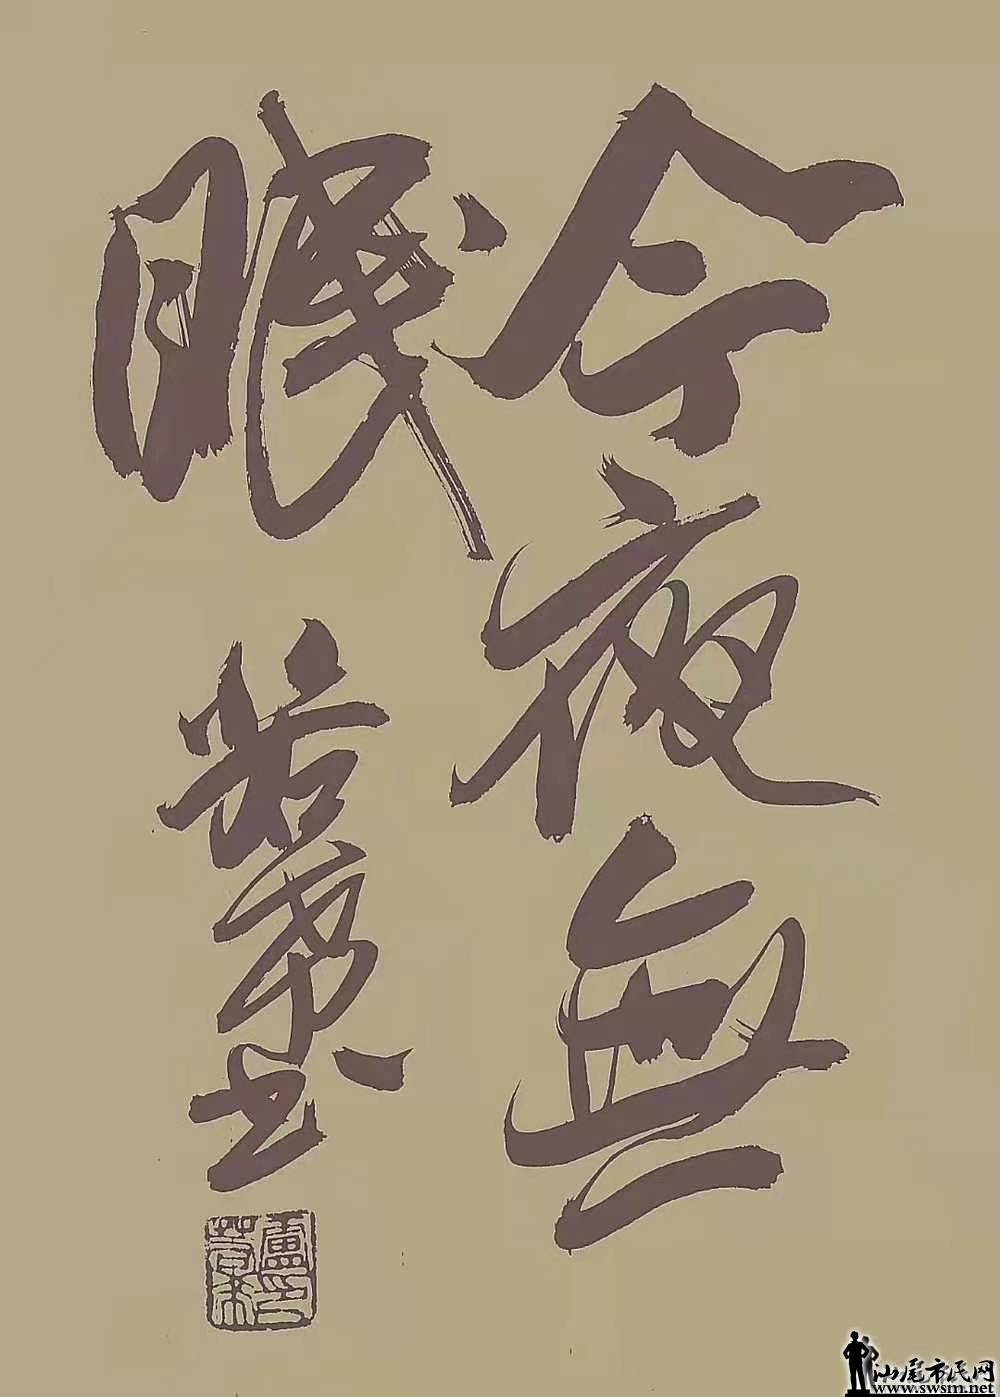 今夜無
眠
书
盧印
汕尾市民网
www.swsm.net